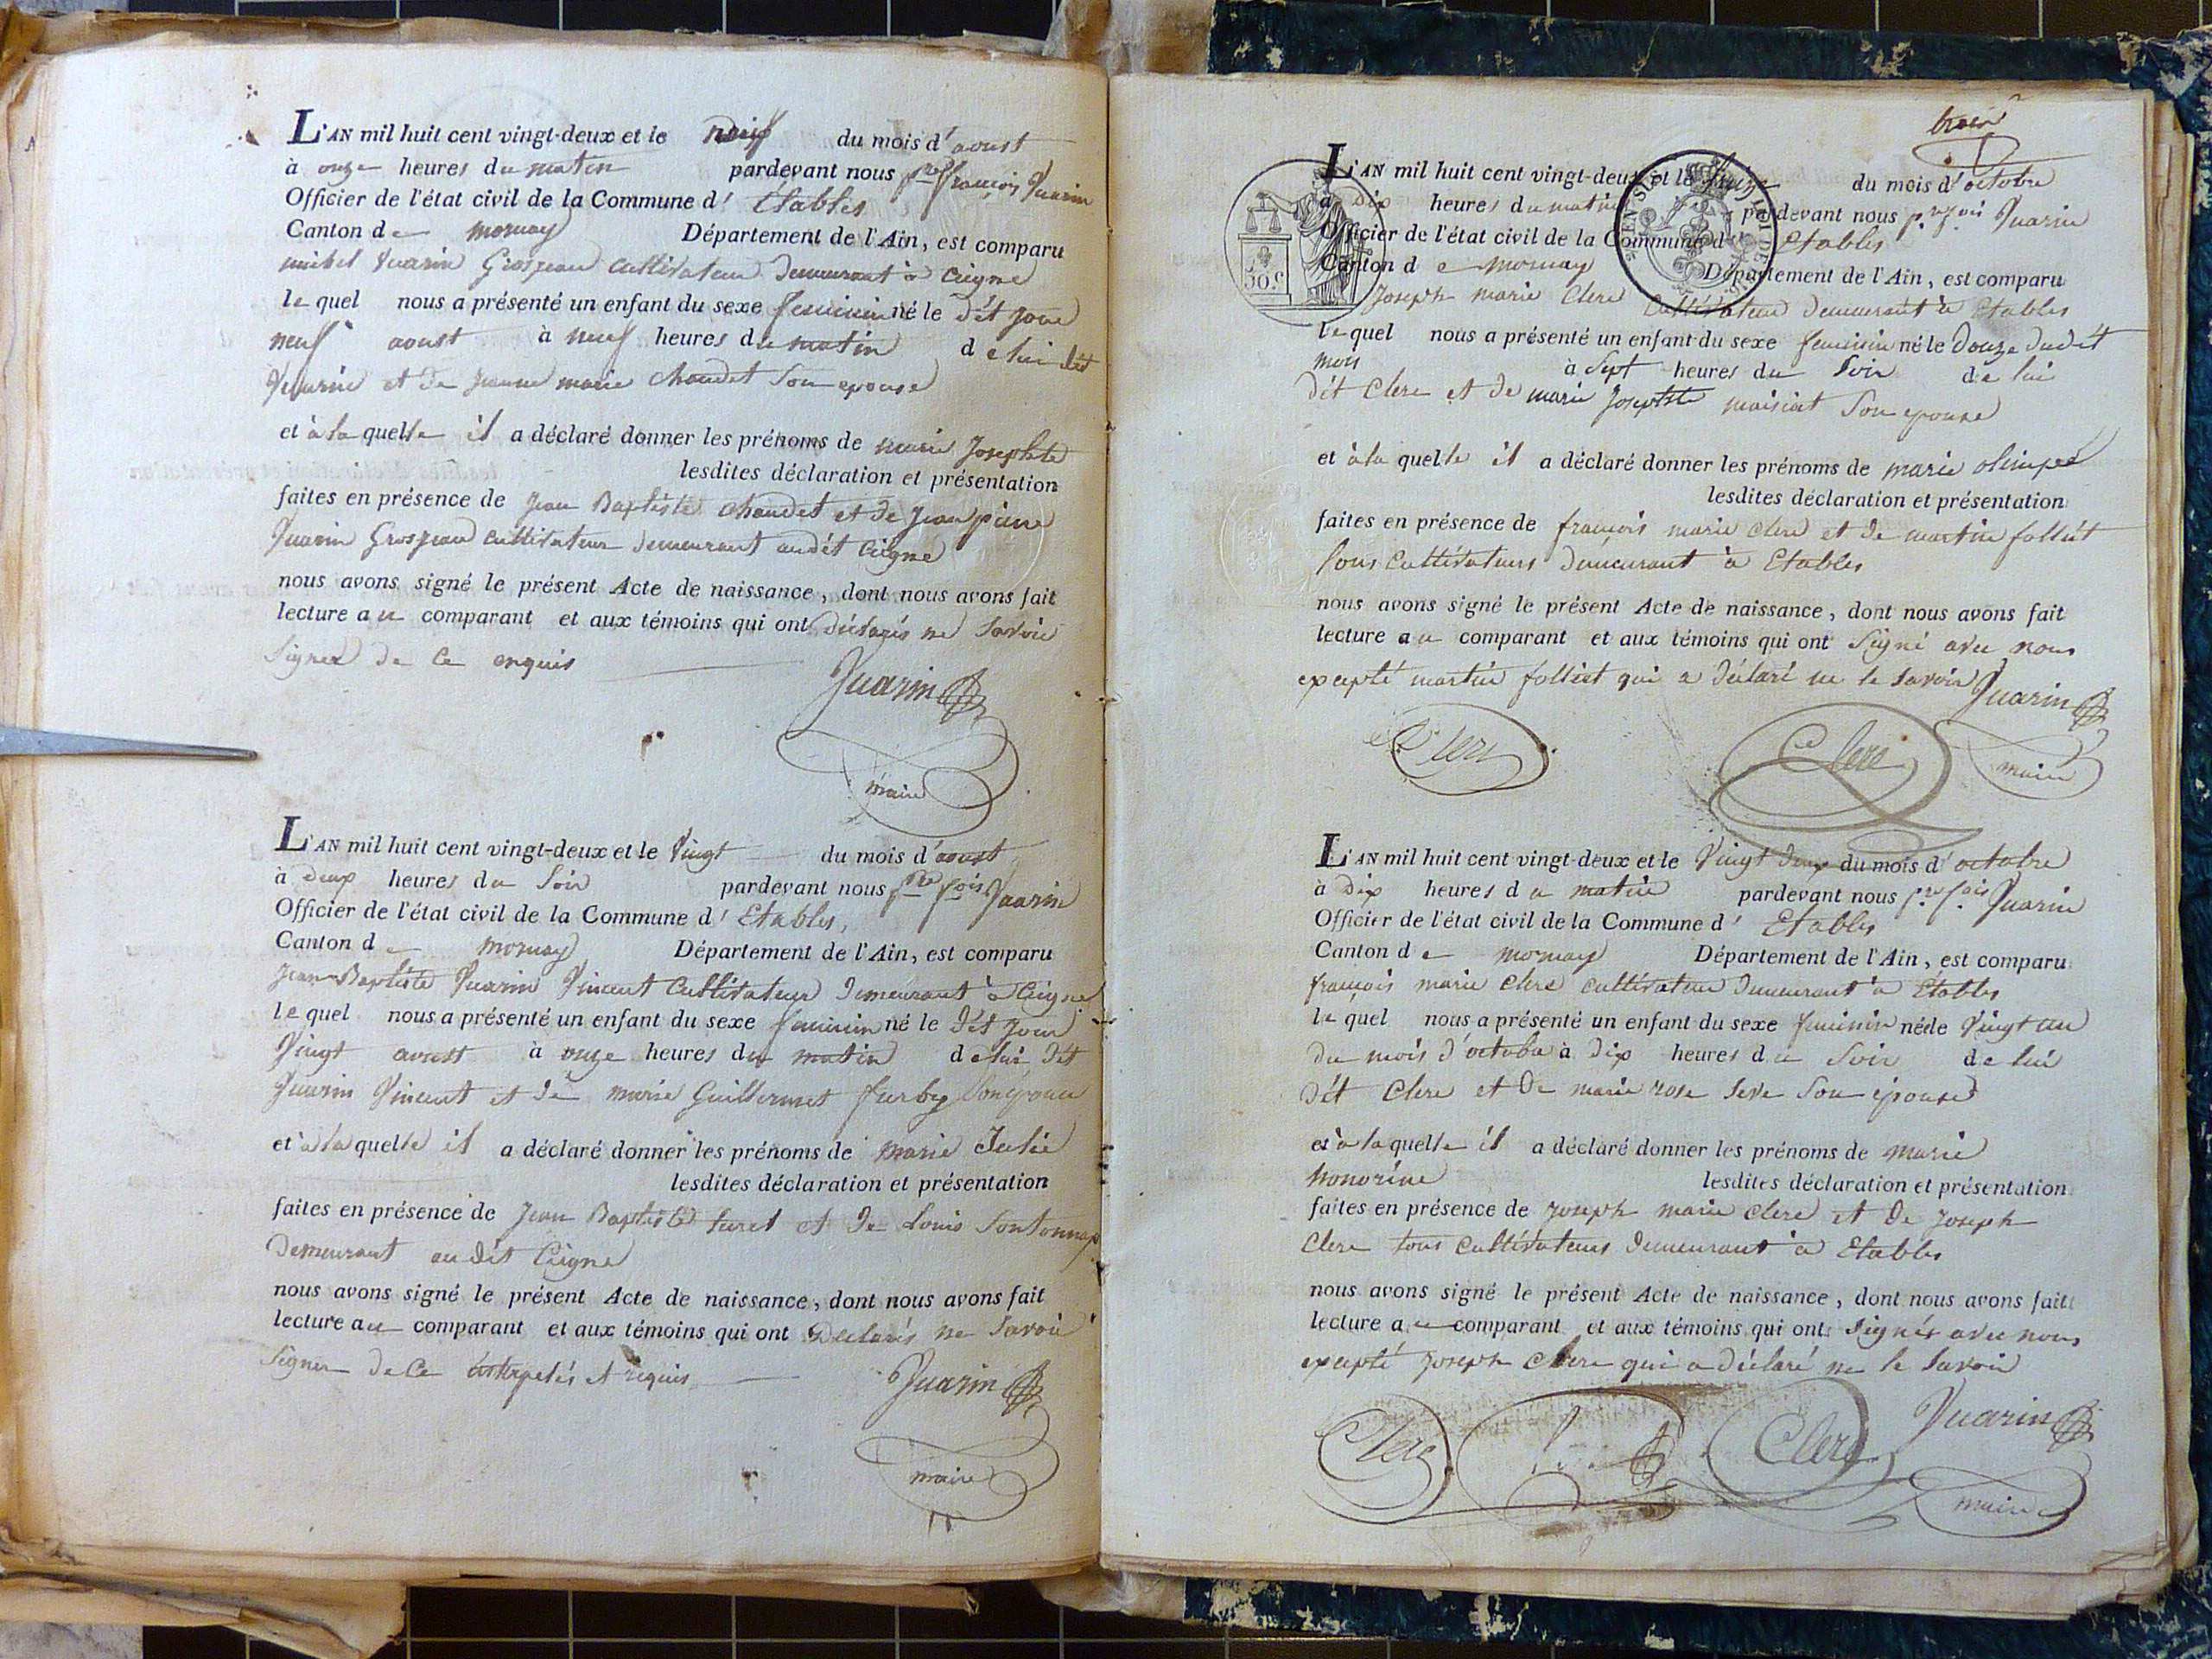 L'AN mil huit cent vingt-deux et le neuf du mois d'aoust
à onze heures du matin pardevant nous pre françois Vuarin
Officier de l'état civil de la Commune d' Etables
Canton de mornay Département de l'Ain, est comparu
michel Vuarin Grosjean cultivateur demeurant à Ceigne
le quel nous a présenté un enfant du sexe feminin né le dét jour
neuf aoust à neuf heures du matin de lui dét
Vuarin et de Jeanne marie chaudet Son epouse
et à la quelle il a déclaré donner les prénoms de marie Josephte
lesdites déclaration et présentation
faites en présence de Jean Baptiste chaudet et de Jean pierre
Vuarin Grosjean cultivateur demeurant audét Ceigne
nous avons signé le présent Acte de naissance, dont nous avons fait
lecture au comparant et aux témoins qui ont déclarés ne Savoir
Signer de Ce enquis
Vuarin
maire
L'AN mil huit cent vingt-deux et le Vingt du mois d'aoust
à deux heures du Soir pardevant nous pre fois Vuarin
Officier de l'état civil de la Commune d' Etables,
Canton de mornay Département de l'Ain, est comparu
Jean-Baptiste Vuarin Vincent Cultivateur demeurant à Ceigne
le quel nous a présenté un enfant du sexe feminin né le dét jour
Vingt aoust à onze heures du matin de lui dét
Vuarin Vincent et de marie Guillermet furby Son epouse
et à la quelle il a déclaré donner les prénoms de marie Julie
lesdites déclaration et présentation
faites en présence de Jean Baptiste furet et de Louis Sontonnax
demeurant au dét Ceigne
nous avons signé le présent Acte de naissance, dont nous avons fait
lecture au comparant et aux témoins qui ont Declarés ne Savoir
Signer de Ce interpelés et requis
Vuarin
maire
trois
L'AN mil huit cent vingt-deux et le du mois d'octobre
à dix heures du matin pardevant nous p.re f.ois Vuarin
Officier de l'état civil de la Commune d' Etables
Canton de mornay Département de l'Ain, est comparu
Joseph marie Clerc Cultivateur demeurant à Etables
le quel nous a présenté un enfant du sexe feminin né le douze dudét
mois à Sept heures du Soir de lui
dét Clerc et de marie Josephte maissiat Son epouse
et à la quelle il a déclaré donner les prénoms de marie olimpe
lesdites déclaration et présentation
faites en présence de françois marie Clerc et de martin folliet
tous Cultivateurs demeurant à Etables
nous avons signé le présent Acte de naissance, dont nous avons fait
lecture au comparant et aux témoins qui ont Signé avec nous
excepté martin folliet qui a déclaré ne le Savoir Vuarin
Clerc Clerc maire
L'AN mil huit cent vingt-deux et le Vingt deux du mois d'octobre
à Dix heures du matin pardevant nous p.re f.ois Vuarin
Officier de l'état civil de la Commune d' Etables
Canton de mornay Département de l'Ain, est comparu
françois marie Clerc cultivateur demeurant à Etables
le quel nous a présenté un enfant du sexe feminin né le Vingt un
du mois d'octobre à dix heures du Soir de lui
dét Clerc et de marie rose Seve Son épouse
et à la quelle il a déclaré donner les prénoms de marie
honorine lesdites déclaration et présentation
faites en présence de Joseph marie Clerc et de Joseph
Clerc tous Cultivateurs demeurant à Etables
nous avons signé le présent Acte de naissance, dont nous avons fait
lecture au comparant et aux témoins qui ont Signés avec nous
excepté Joseph Clerc qui a déclaré ne le Savoir
Clerc Clerc Vuarin
maire